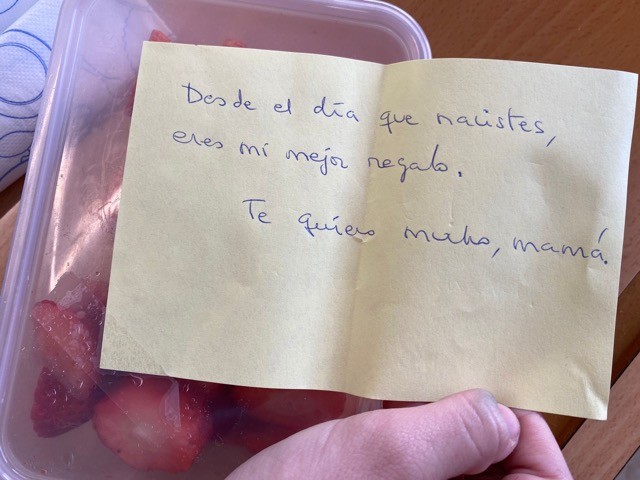 Desde el día que nacistes,
eres mi mejor regalo.
Te quiero mucho, mamá.